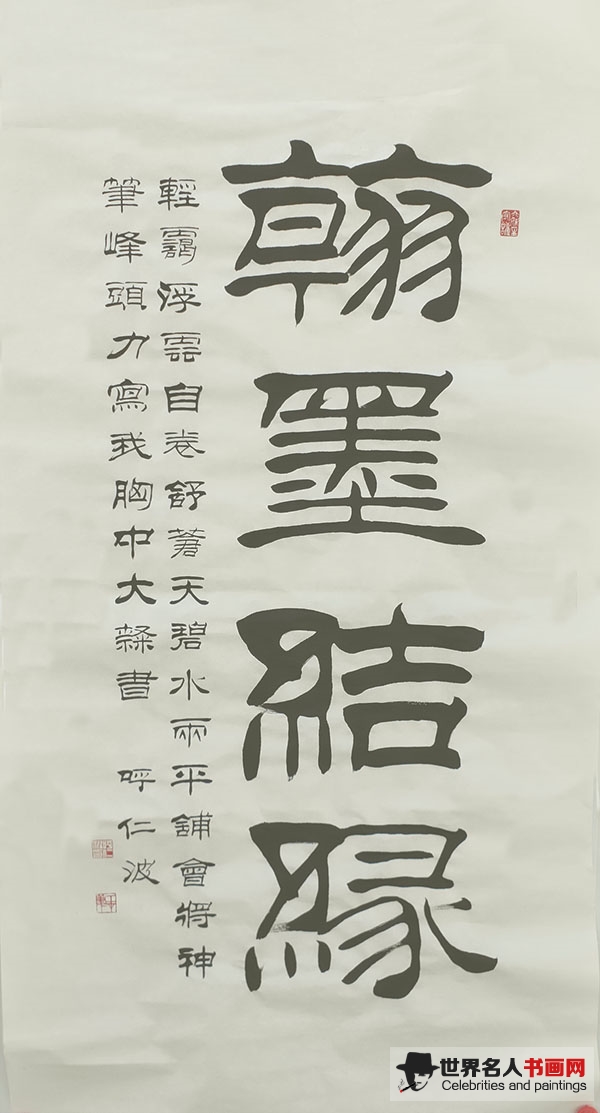 翰墨结缘
輕霧浮雲自卷舒蒼天碧水兩平鋪會將神
筆峰頭力寫我胸中大隸書 呼仁波
世界名人书画网
Celebrities and paintings